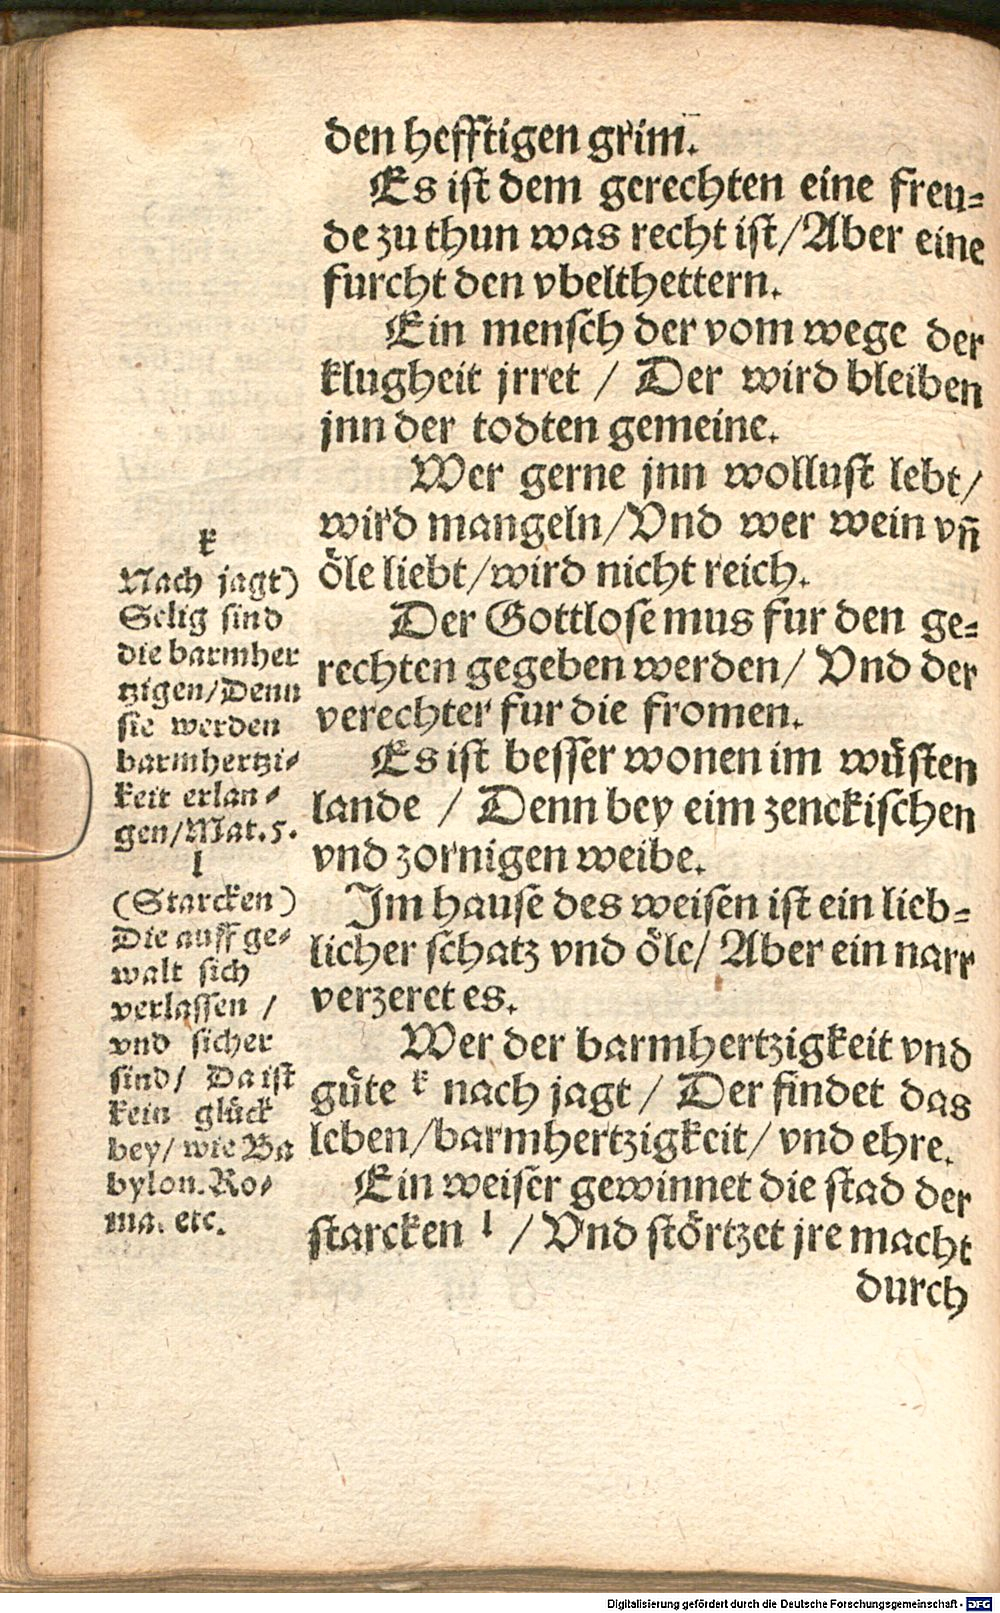 den hefftigen grim̃.
Es ist dem gerechten eine freu=
de zu thun was recht ist/Aber eine
furcht den vbelthettern.
Ein mensch der vom wege der
klugheit jrret / Der wird bleiben
jnn der todten gemeine.
Wer gerne jnn wollust lebt/
wird mangeln/Vnd wer wein vñ
öle liebt/wird nicht reich.
Der Gottlose mus fur den ge=
rechten gegeben werden/ Vnd der
verechter fur die fromen.
Es ist besser wonen im wüsten
lande / Denn bey eim zenckischen
vnd zornigen weibe.
Im hause des weisen ist ein lieb=
licher schatz vnd öle/ Aber ein narr
verzeret es.
Wer der barmhertzigkeit vnd
güte k nach jagt / Der findet das
leben/barmhertzigkeit/ vnd ehre.
Ein weiser gewinnet die stad der
starcken l / Vnd störtzet jre macht
durch
k
Nach jagt)
Selig sind
die barmher
tzigen/Denn
sie werden
barmhertzi=
keit erlan=
gen/Mat.5.
l
(Starcken)
Die auff ge=
walt sich
verlassen /
vnd sicher
sind/ Da ist
kein glück
bey/ wie Ba
bylon. Ro=
ma. etc.
Digitalisierung gefördert durch die Deutsche Forschungsgemeinschaft - DFG